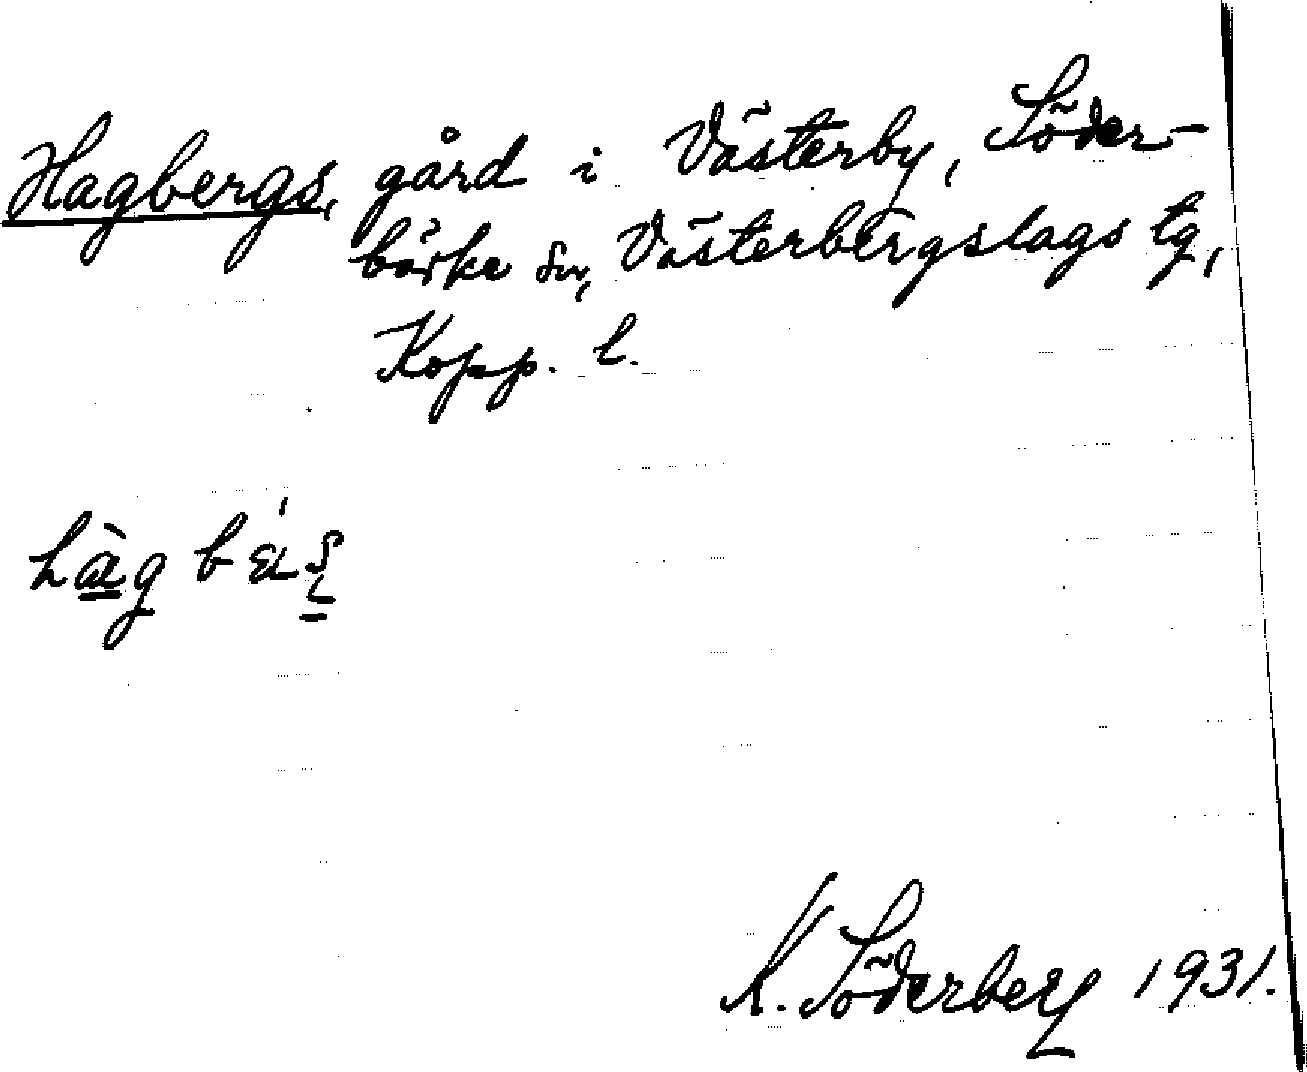 Hagbergs, gård i Västerby, Söder-
bärke sn, Västerbergslags tg,
Kopp. l.
K. Söderberg 1931.